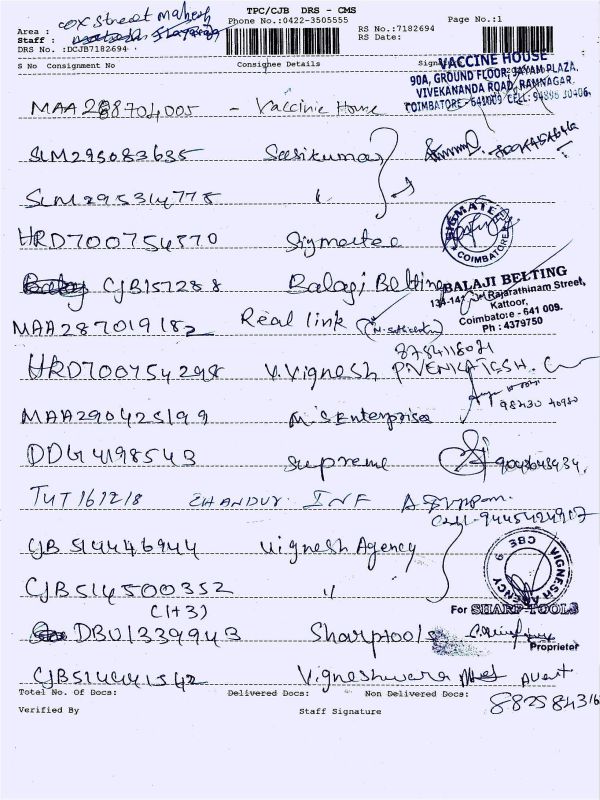 TPC/CJB DRS - CMS
Area : cox street mahesh
Phone No.:0422-3505555
Page No.:1
Staff :
RS No.:7182694
DRS No. :DCJB7182694
RS Date:
S No Consignment No Consignee Details
VACCINE HOUSE
90A, GROUND FLOOR, JAYAM PLAZA.
VIVEKANANDA ROAD, RAMNAGAR.
COIMBATORE - 641009 CELL: 94896 30406.
MAA288704005 - Vaccinie House
SLM295083635 Sasikumar
SLM295314775 "
SIGMATE
COIMBATORE
HRD700754570 Sigmatee
CJB157288 Balagi Belting
BALAJI BELTING
Rajarathinam Street,
Kattoor,
Coimbatore - 641 009.
Ph : 4379750
MAA287019182 Real link
8784118021
HRD700754298 V.Vignesh P.VENKATESH.
98430 40980
MAA290425199 M.S Enterprises
DDG4198543 Supreme
TUT161218 CHANDUR. INF
Cell-9445424917
CJB514446944 Vignesh Agency
VIGNESH AGENCY CBE 9
CJB514500352 "
(1+3)
For SHARP TOOLS
DBU1339943 Sharptools
Proprietor
CJB514441542 Vigneshwara
Total No. Of Docs: Delivered Docs: Non Delivered Docs:
Verified By Staff Signature